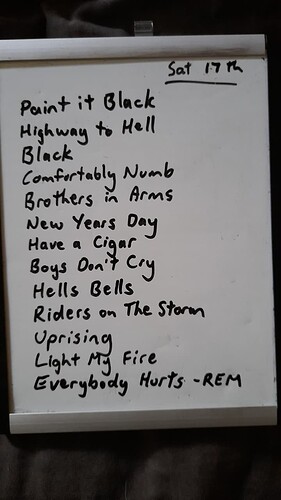 Sat 17th
Paint it Black
Highway to Hell
Black
Comfortably Numb
Brothers in Arms
New Years Day
Have a Cigar
Boys Don't Cry
Hells Bells
Riders on The Storm
Uprising
Light My Fire
Everybody Hurts -REM